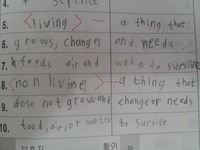 4. science
5. <living> — a thing that
6. grows, changes and needs
7. foods, air and water to survive
8. <non living> — a thing that
9. dose not grow and change or needs
10. food, air, or water to survive
확인